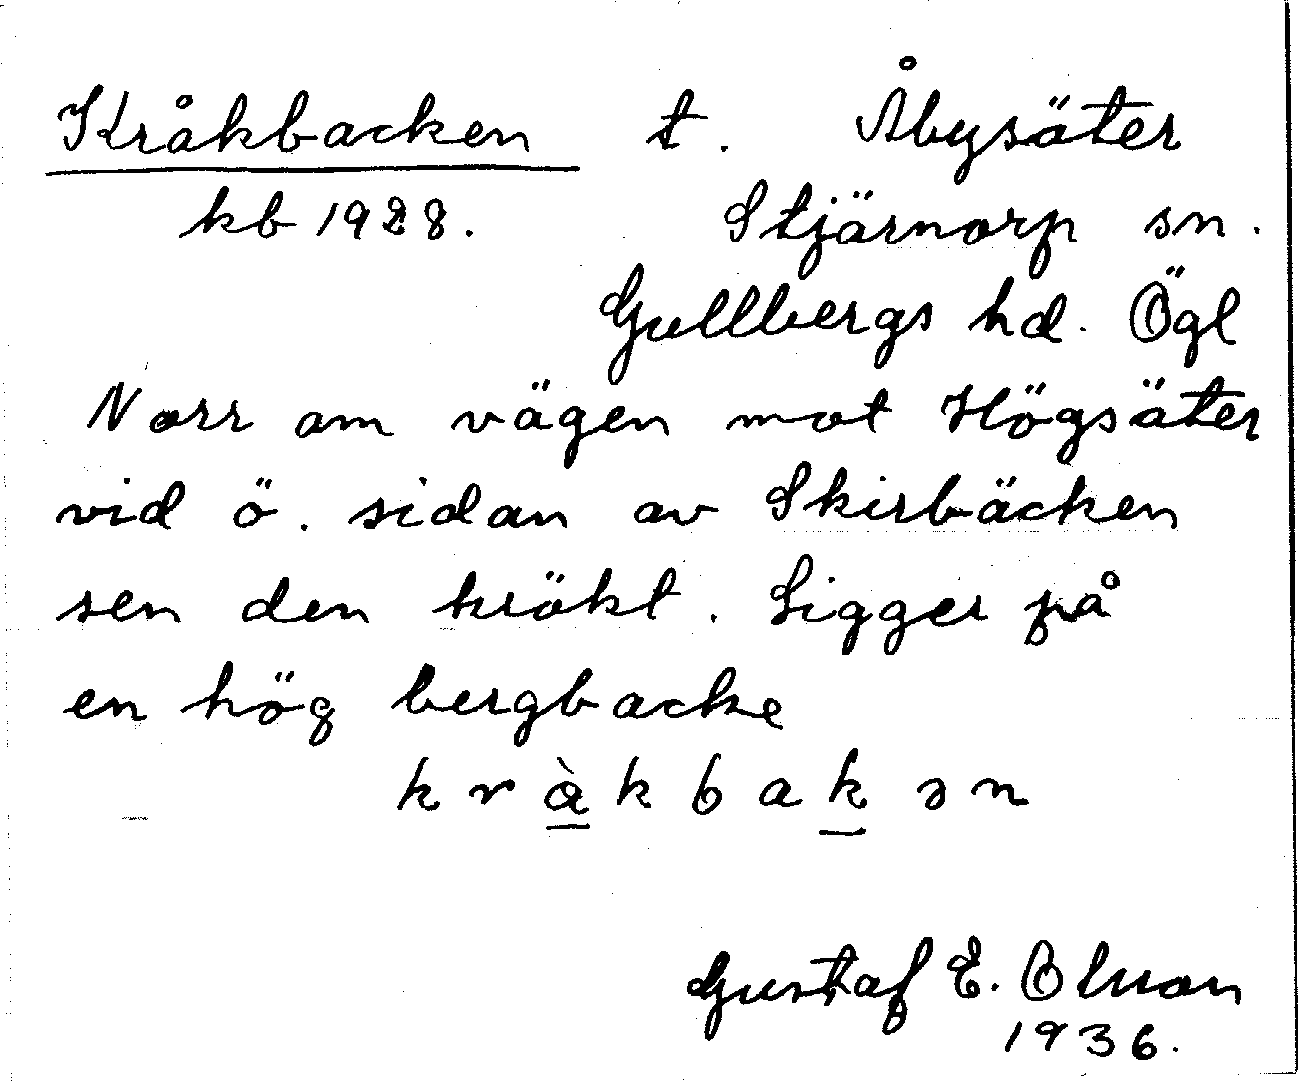 Kråkbacken t. Åbysäter
kb 1928. Stjärnorp sn.
Gullbergs hd. Ögl
Norr om vägen mot Högsäter
vid ö. sidan av Skirbäcken
sen den krökt. Ligger på
en hög bergbacke
krå̀kbakən
Gustaf E. Olsson
1936.